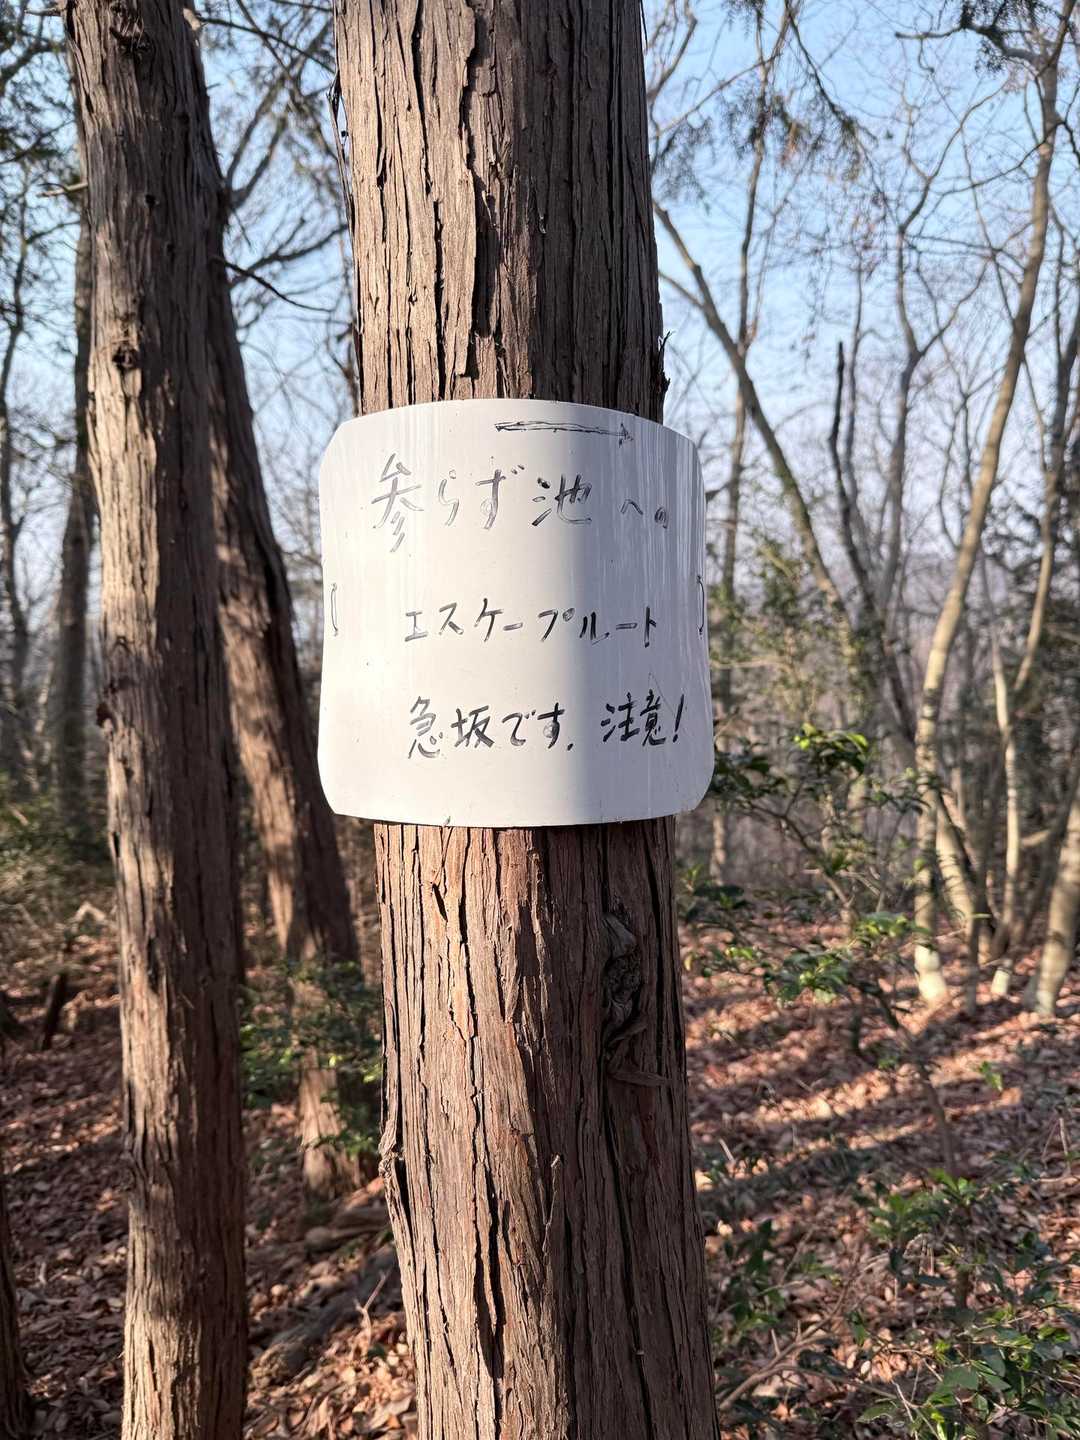 →
参らず池への
エスケープルート
急坂です。注意!